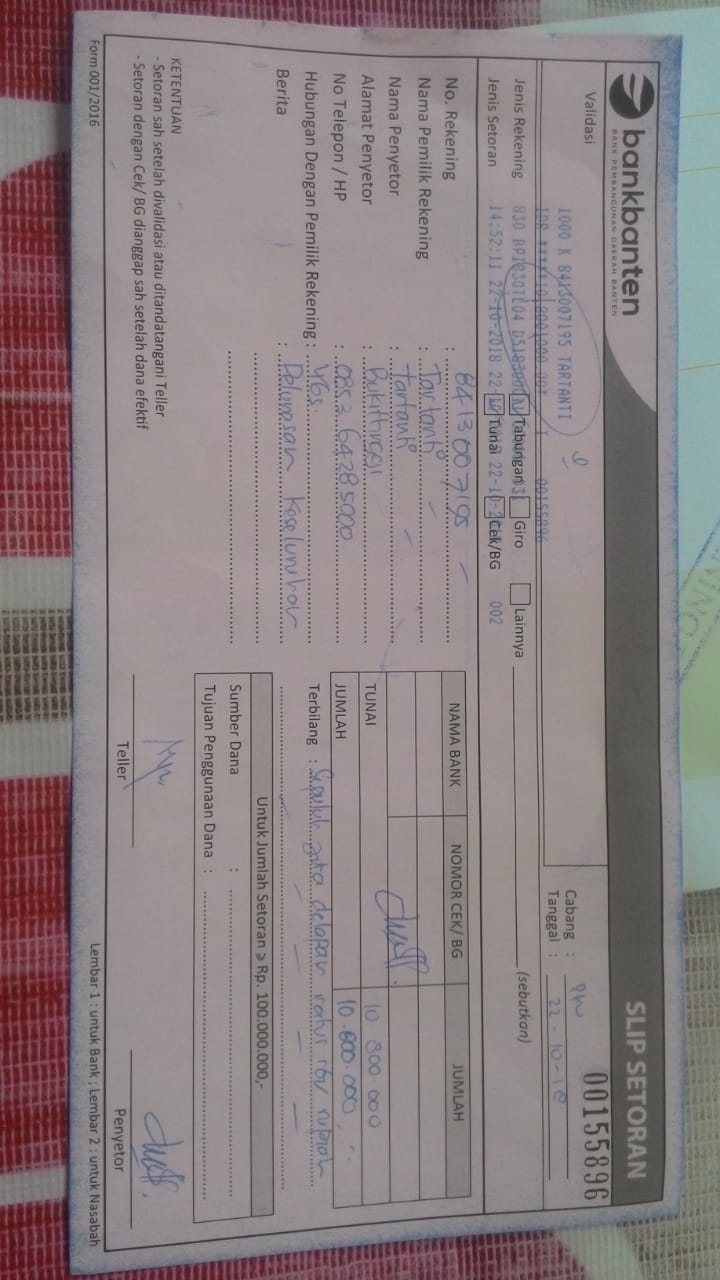 bankbanten
BANK PEMBANGUNAN DAERAH BANTEN
SLIP SETORAN
00155896
Validasi
1000 K 8413007195 TARTANTI
00155896
Cabang :
Tanggal : 22-10-18
Jenis Rekening Tabungan Giro Lainnya (sebutkan)
Jenis Setoran 14:52:11 22-10-2018 Tunai Cek/BG 002
No. Rekening : 8413007195
Nama Pemilik Rekening : Tartanti
Nama Penyetor : Tartanti
Alamat Penyetor : Bukittinggi
No Telepon / HP : 0852 64285000
Hubungan Dengan Pemilik Rekening : YBs.
Berita : Pelunasan Keseluruhan
NAMA BANK NOMOR CEK/ BG JUMLAH
TUNAI 10 800.000
JUMLAH 10.800.000
Terbilang : Sepuluh juta delapan ratus ribu rupiah
Untuk Jumlah Setoran ≥ Rp. 100.000.000,-
Sumber Dana :
Tujuan Penggunaan Dana :
KETENTUAN
- Setoran sah setelah divalidasi atau ditandatangani Teller
- Setoran dengan Cek/ BG dianggap sah setelah dana efektif
Teller
Penyetor
Form 001/2016
Lembar 1 : untuk Bank ; Lembar 2 : untuk Nasabah